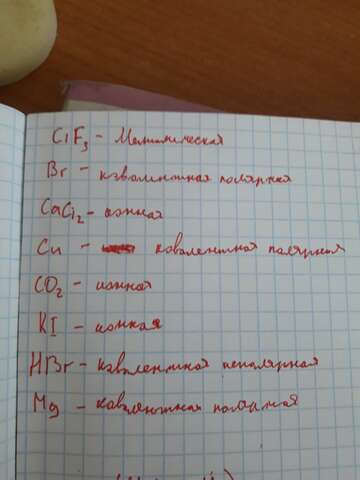 ClF₃ - Металическая
Br - ковалентная полярная
CaCl₂ - ионная
Cu - ковалентная полярная
CO₂ - ионная
KI - ионная
HBr - ковалентная неполярная
Mg - ковалентная полярная